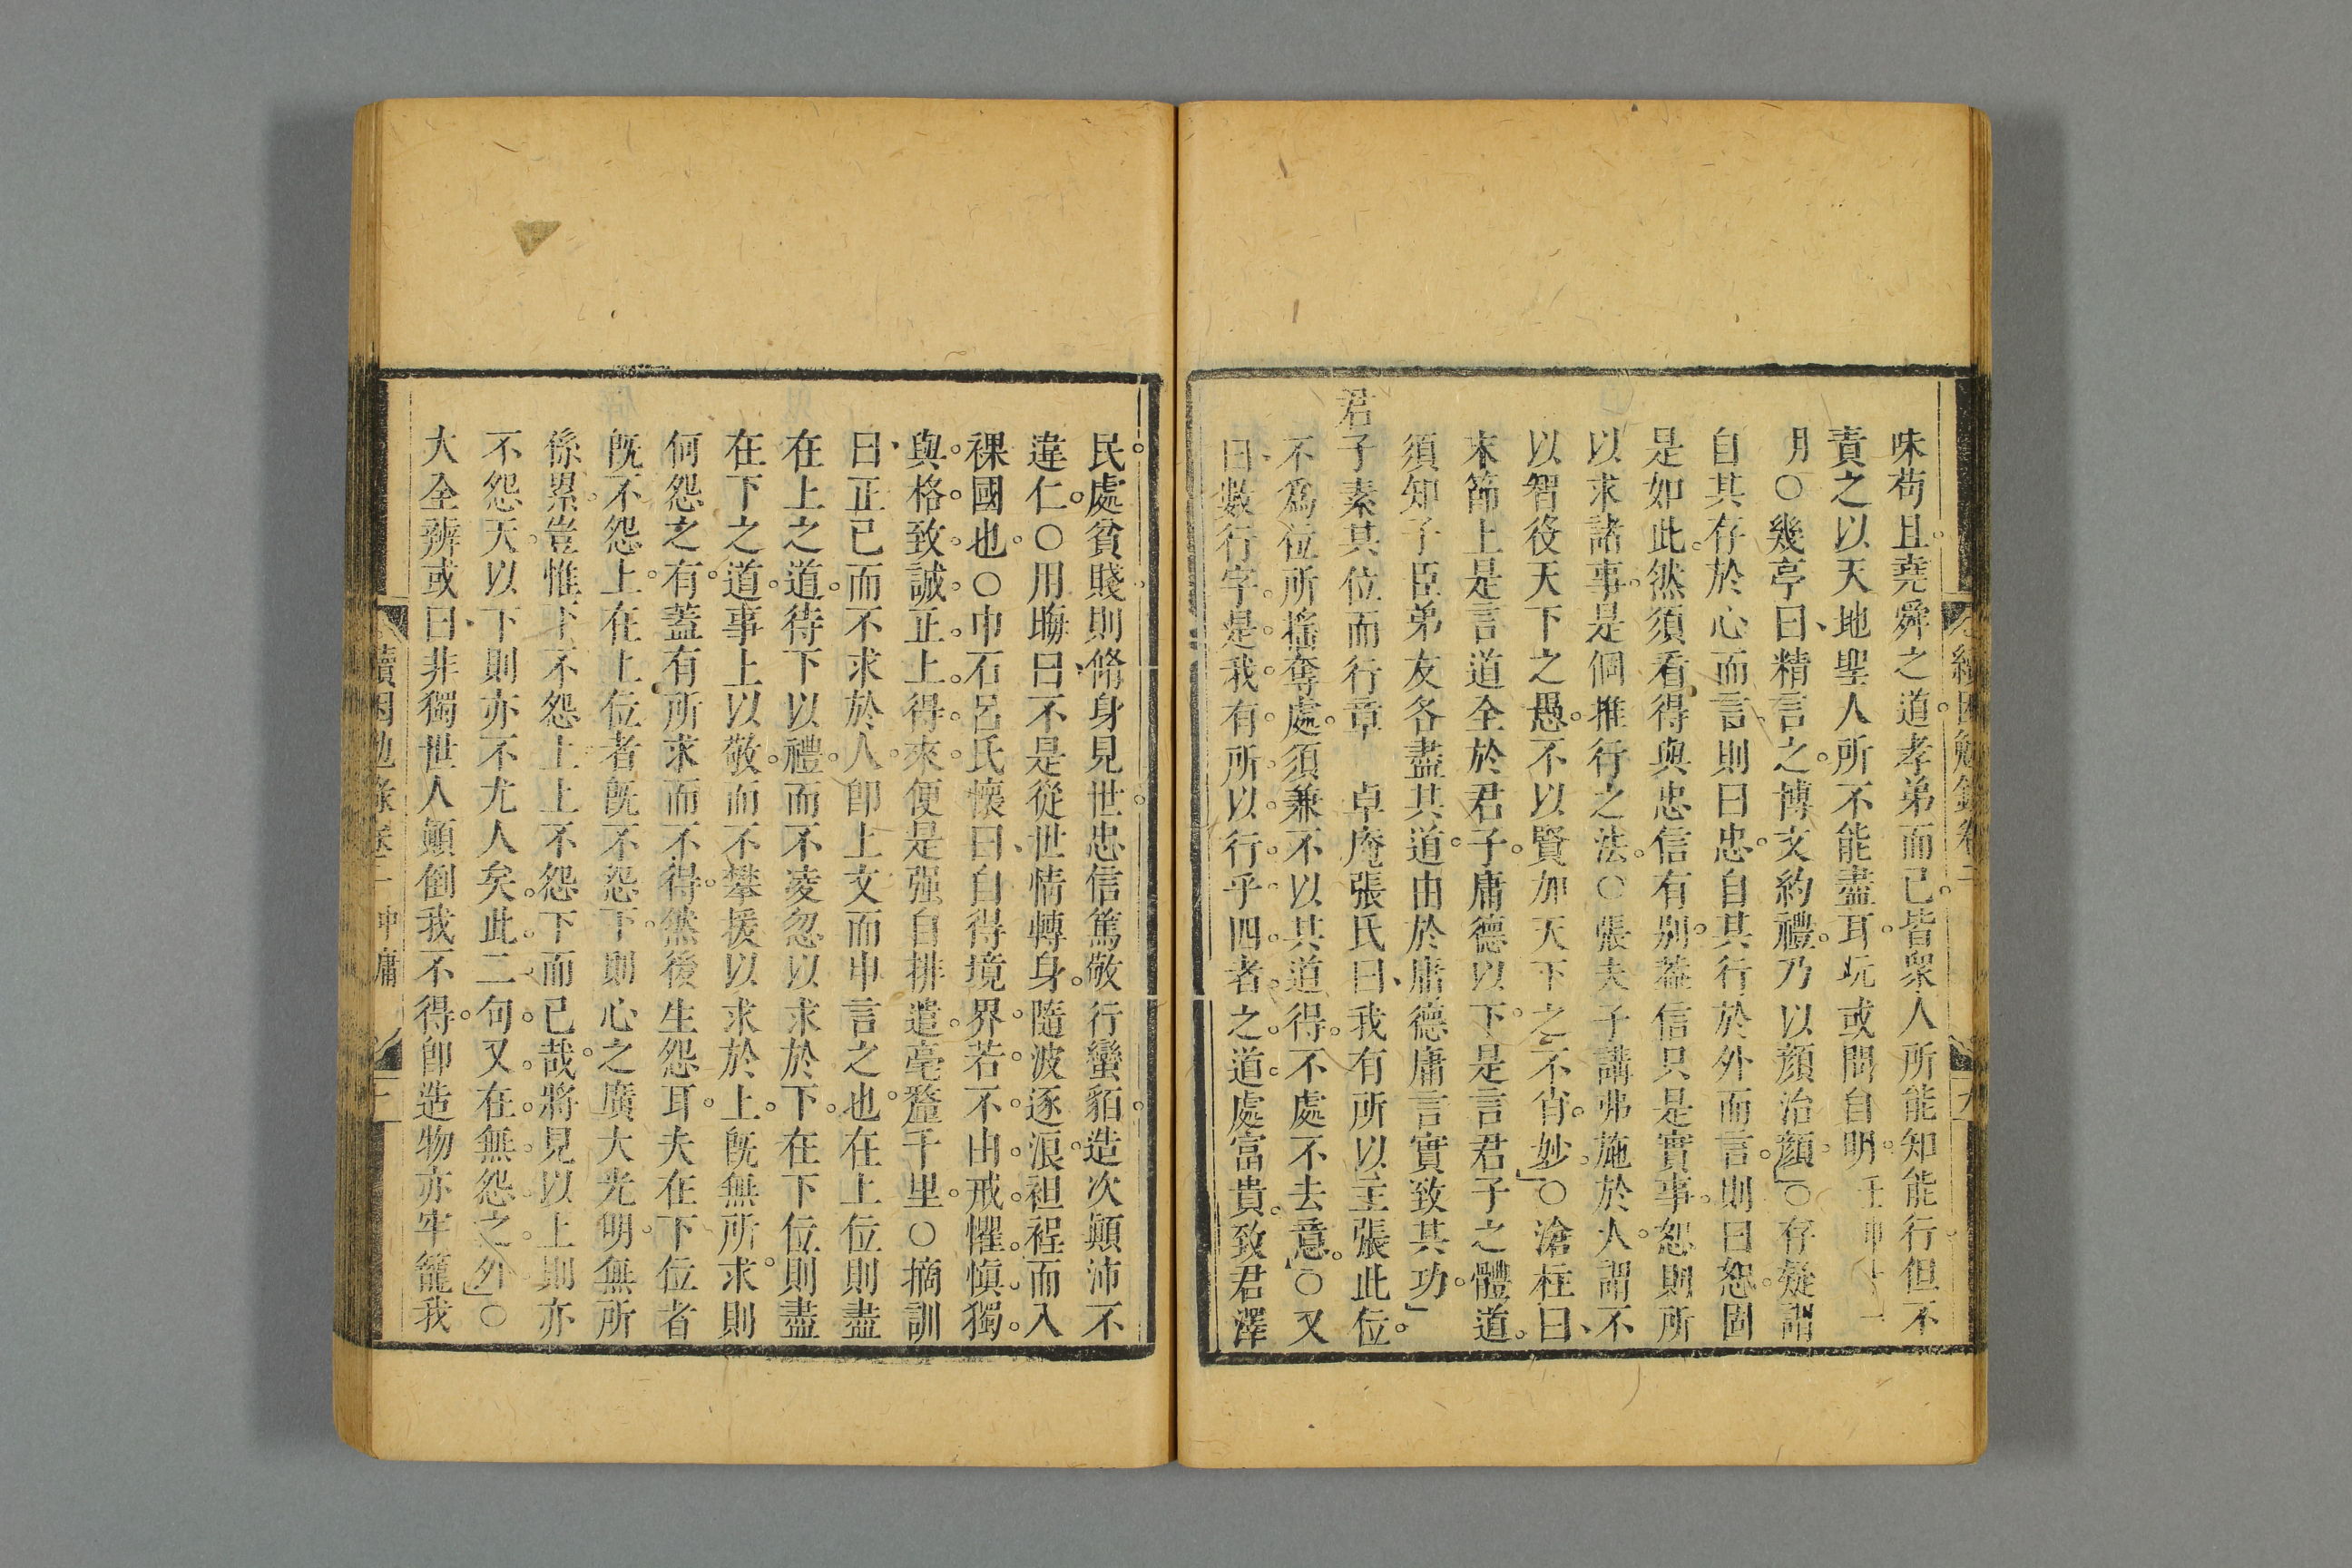 味苟且堯舜之道孝弟而已皆衆人所能知能行但不
責之以天地聖人所不能盡耳玩或問自明
月○幾亭曰精言之博文約禮乃以顏治顏○存疑謂
自其存於心而言則曰忠自其行於外而言則曰恕固
是如此然須看得與忠信有別蓋信只是實事恕則所
以求諸事是個推行之法○張夫子講弗施於人謂不
以智役天下之愚不以賢加天下之不肖妙○滄柱曰
末節上是言道全於君子庸德以下是言君子之體道
須知子臣弟友各盡其道由於庸德庸言實致其功
君子素其位而行章　卓庵張氏曰我有所以主張此位
不爲位所搖奪處須兼不以其道得不處不去意○又
曰數行字是我有所以行乎四者之道處富貴致君澤
民處貧賤則脩身見世忠信篤敬行蠻貊造次顛沛不
違仁○用晦曰不是從世情轉身隨波逐浪袒裎而入
裸國也○巾石呂氏懷曰自得境界若不由戒懼愼獨
與格致誠正上得來便是强自排遣毫釐千里○摘訓
曰正已而不求於人卽上文而申言之也在上位則盡
在上之道待下以禮而不凌忽以求於下在下位則盡
在下之道事上以敬而不攀援以求於上旣無所求則
何怨之有蓋有所求而不得然後生怨耳夫在下位者
旣不怨上在上位者旣不怨下則心之廣大光明無所
係累豈惟下不怨上上不怨下而已哉將見以上則亦
不怨天以下則亦不尤人矣此二句又在無怨之外○
大全辨或曰非獨世人顛倒我不得卽造物亦牢籠我
續困勉錄卷二　中庸